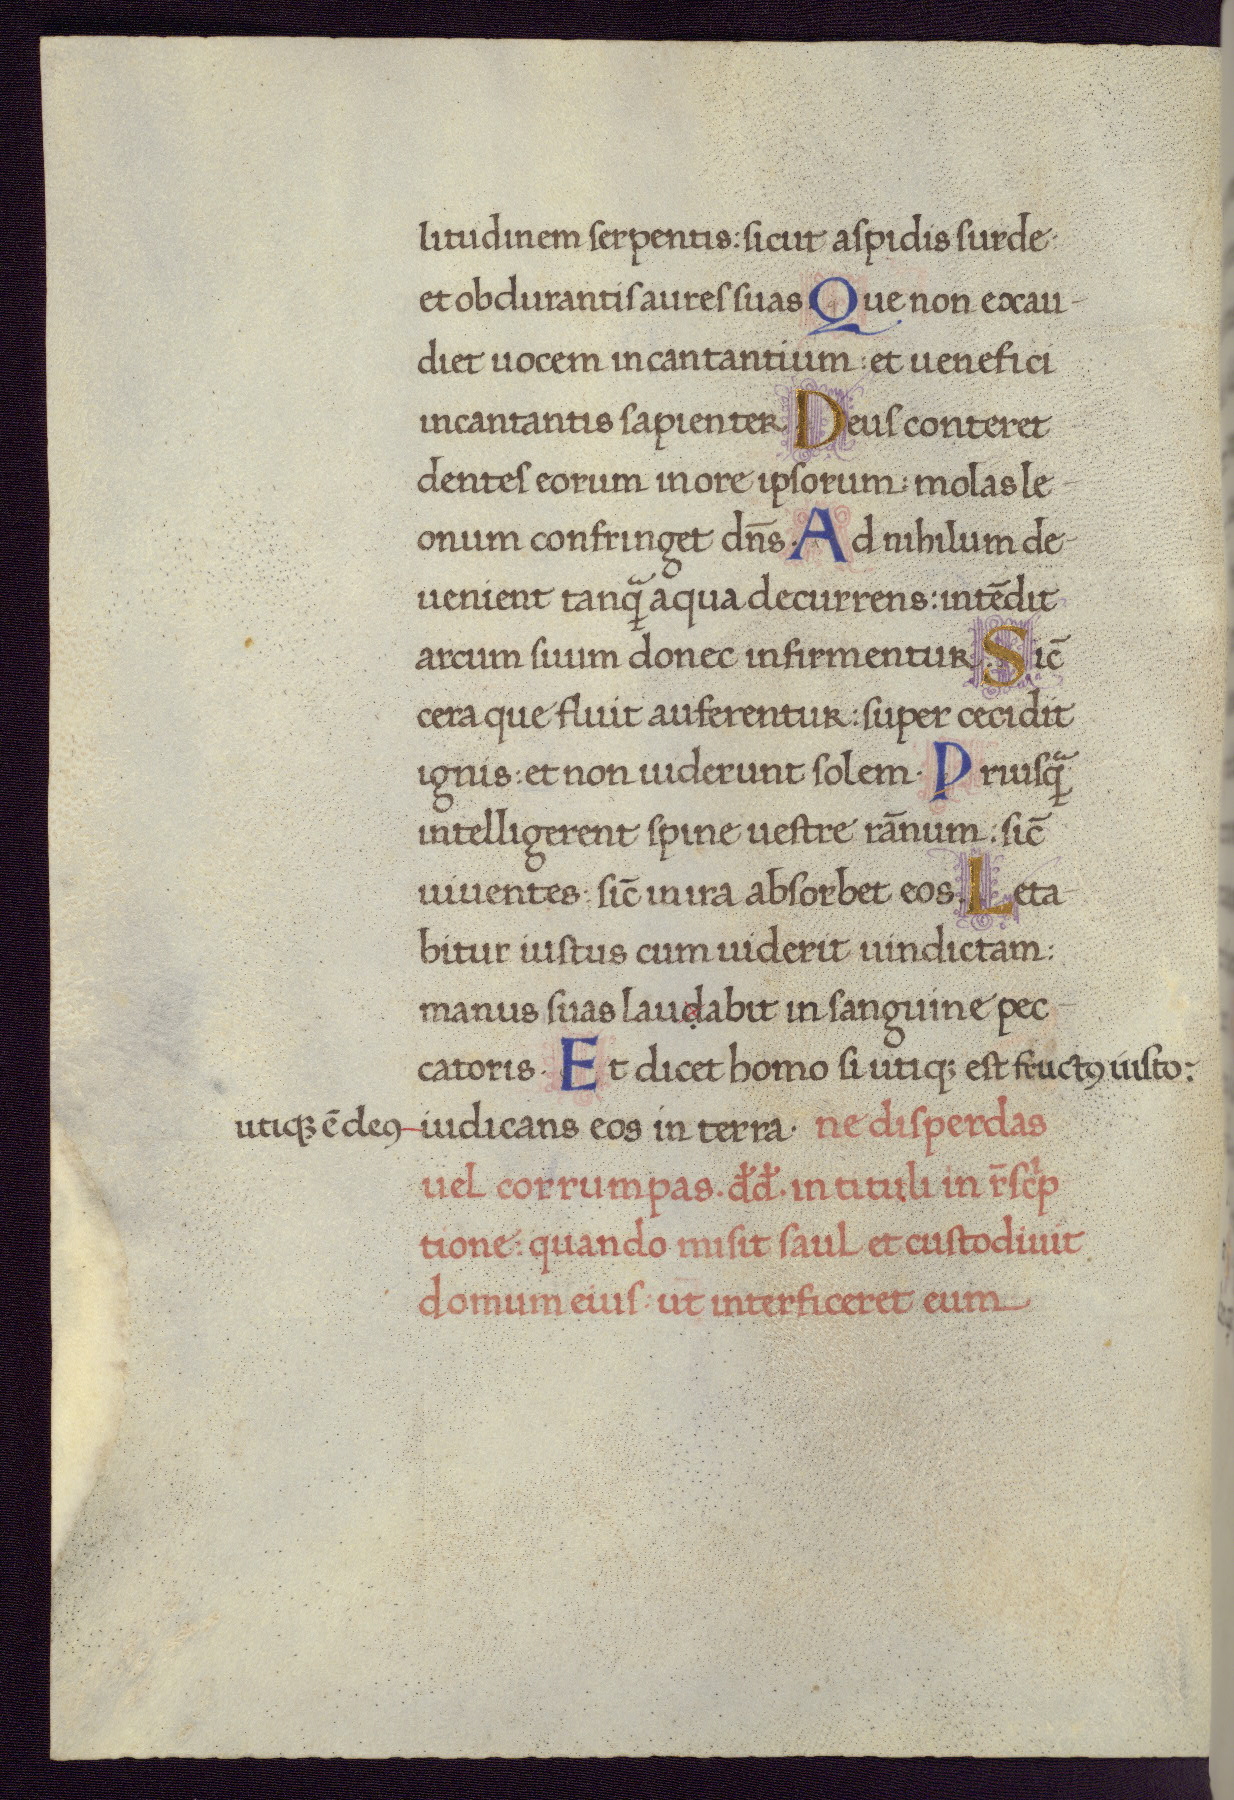 litudinem serpentis: sicut aspidis surde
et obdurantis aures suas Que non exau-
diet uocem incantantium: et uenefici
incantantis sapienter. Deus conteret
dentes eorum in ore ipsorum: molas le-
onum confringet dn̄s. Ad nihilum de-
uenient tanqᷓ aqua decurrens: intēdit
arcum suum donec infirmentur. Sic̄
cera que fluit auferentur: super cecidit
ignis: et non uiderunt solem. Priusqᷓ
intelligerent spine uestre rānum: sic̄
uiuentes: sic̄ in ira absorbet eos. Leta-
bitur iustus cum uiderit uindictam:
manus suas lauạdabit in sanguine pec-
catoris. Et dicet homo si utiqꝫ est fructꝯ iusto:
utiqꝫ ē deꝯ iudicans eos in terra. ne disperdas
uel corrumpas. d̄d̄. in tituli in r̄sc̄p
tione: quando misit saul et custodiuit
domum eius: ut interficeret eum